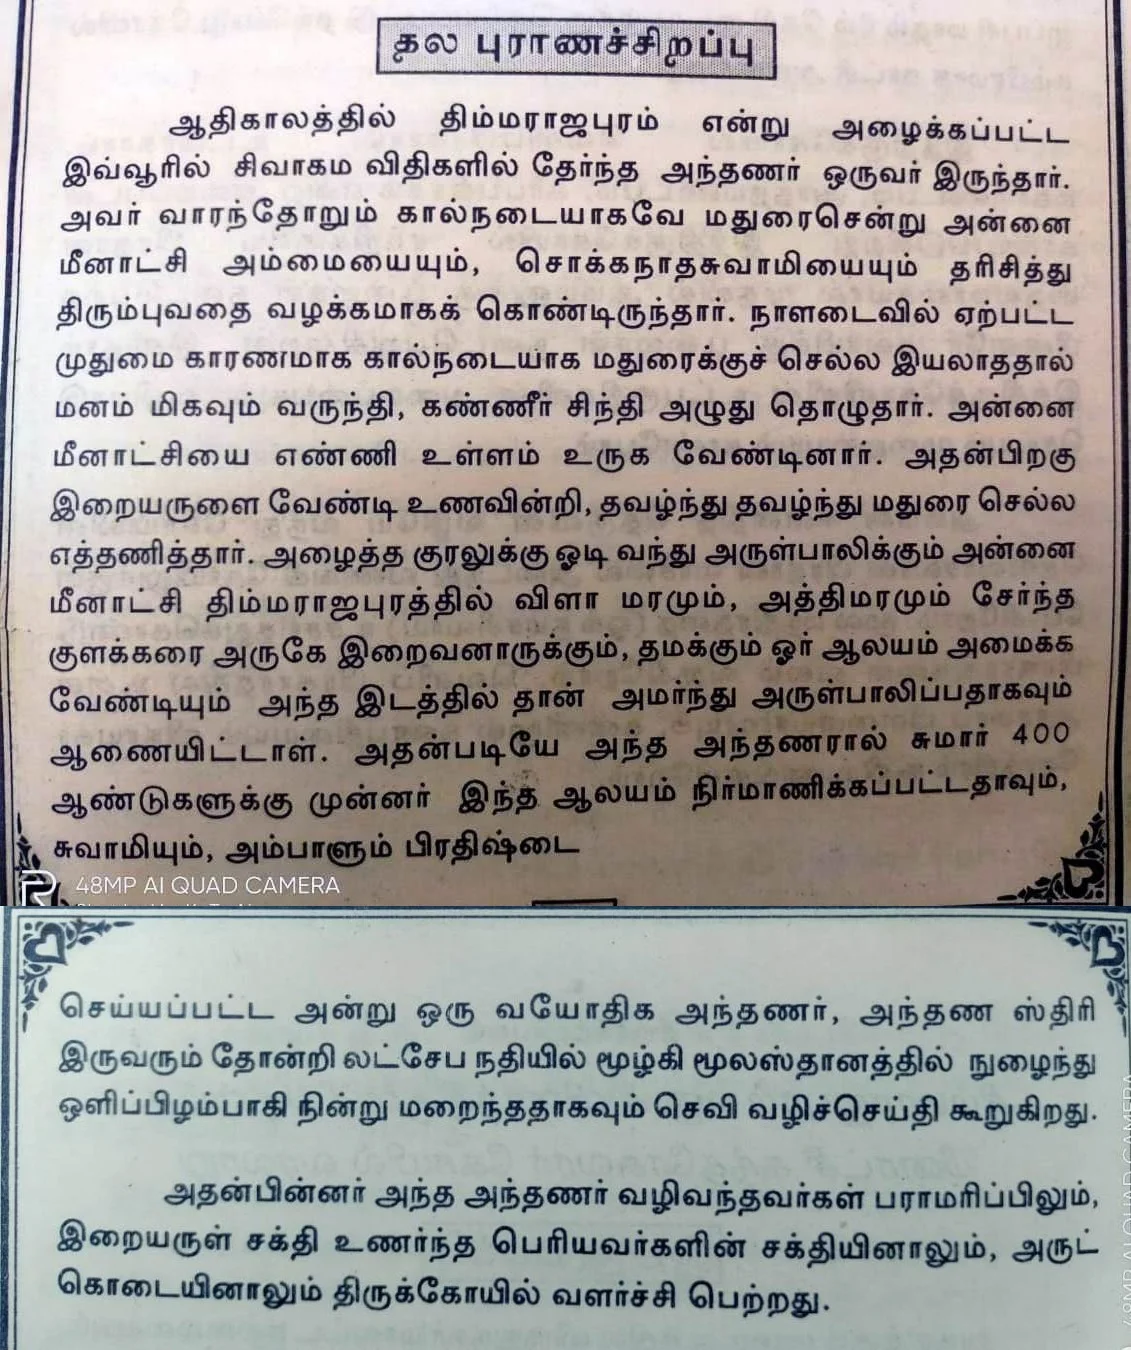 தல புராணச்சிறப்பு
ஆதிகாலத்தில் திம்மராஜபுரம் என்று அழைக்கப்பட்ட
இவ்வூரில் சிவாகம விதிகளில் தேர்ந்த அந்தணர் ஒருவர் இருந்தார்.
அவர் வாரந்தோறும் கால்நடையாகவே மதுரைசென்று அன்னை
மீனாட்சி அம்மையையும், சொக்கநாதசுவாமியையும் தரிசித்து
திரும்புவதை வழக்கமாகக் கொண்டிருந்தார். நாளடைவில் ஏற்பட்ட
முதுமை காரணமாக கால்நடையாக மதுரைக்குச் செல்ல இயலாததால்
மனம் மிகவும் வருந்தி, கண்ணீர் சிந்தி அழுது தொழுதார். அன்னை
மீனாட்சியை எண்ணி உள்ளம் உருக வேண்டினார். அதன்பிறகு
இறையருளை வேண்டி உணவின்றி, தவழ்ந்து தவழ்ந்து மதுரை செல்ல
எத்தணித்தார். அழைத்த குரலுக்கு ஓடி வந்து அருள்பாலிக்கும் அன்னை
மீனாட்சி திம்மராஜபுரத்தில் விளா மரமும், அத்திமரமும் சேர்ந்த
குளக்கரை அருகே இறைவனாருக்கும், தமக்கும் ஓர் ஆலயம் அமைக்க
வேண்டியும் அந்த இடத்தில் தான் அமர்ந்து அருள்பாலிப்பதாகவும்
ஆணையிட்டாள். அதன்படியே அந்த அந்தணரால் சுமார் 400
ஆண்டுகளுக்கு முன்னர் இந்த ஆலயம் நிர்மாணிக்கப்பட்டதாவும்,
சுவாமியும், அம்பாளும் பிரதிஷ்டை
48MP AI QUAD CAMERA
செய்யப்பட்ட அன்று ஒரு வயோதிக அந்தணர், அந்தண ஸ்திரி
இருவரும் தோன்றி லட்சேப நதியில் மூழ்கி மூலஸ்தானத்தில் நுழைந்து
ஒளிப்பிழம்பாகி நின்று மறைந்ததாகவும் செவி வழிச்செய்தி கூறுகிறது.
அதன்பின்னர் அந்த அந்தணர் வழிவந்தவர்கள் பராமரிப்பிலும்,
இறையருள் சக்தி உணர்ந்த பெரியவர்களின் சக்தியினாலும், அருட்
கொடையினாலும் திருக்கோயில் வளர்ச்சி பெற்றது.
48MP AI QUAD CAMERA